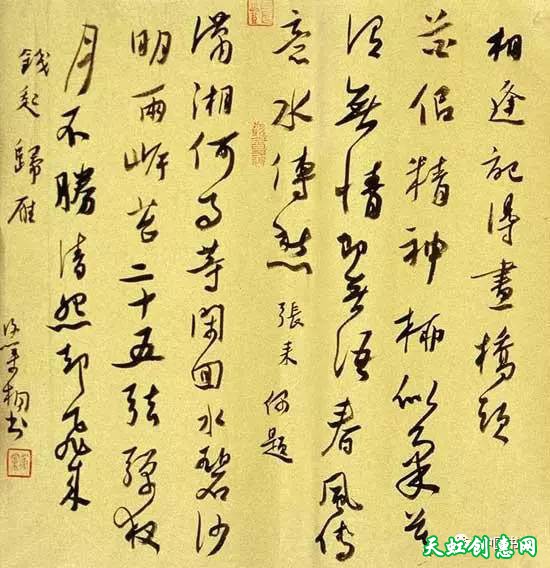 相逢記得畫橋頭
花佀精神柳似柔莫
謂無情即無語春風傳
意水傳愁 張耒 偶題
瀟湘何事等閑回水碧沙
明兩岸苔二十五弦彈夜
月不勝清怨却飛來
錢起 歸雁
桐书
天虹创意网